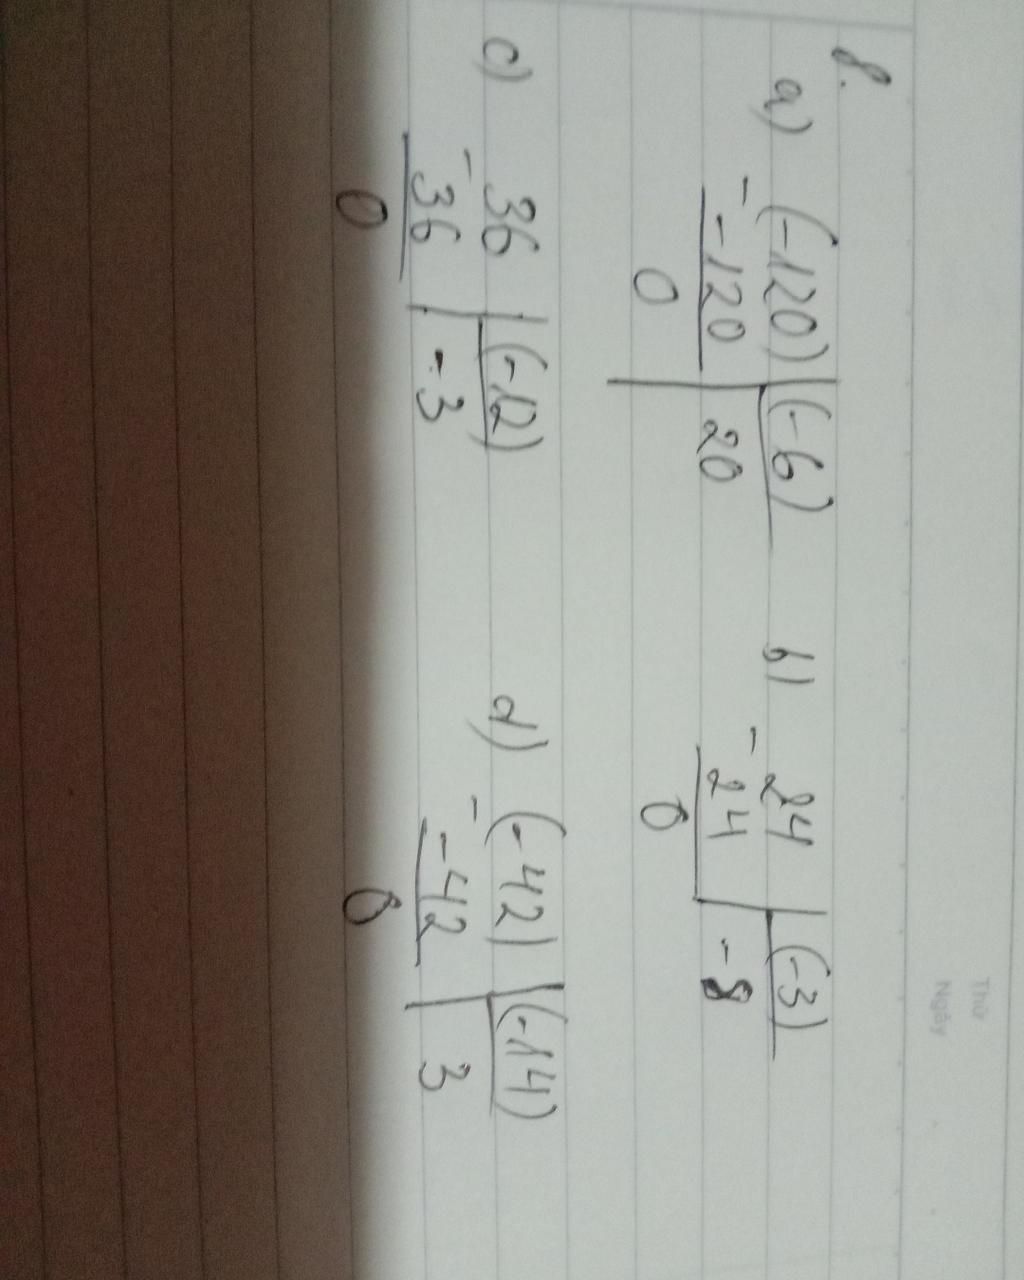 Thứ
Ngày
8.
a) (-120) (-6) b) 24 (-3)
- -120 20 - 24 -8
0 0
c) 36 (-12) d) (-42) (-14)
- 36 -3 - -42 3
0 0